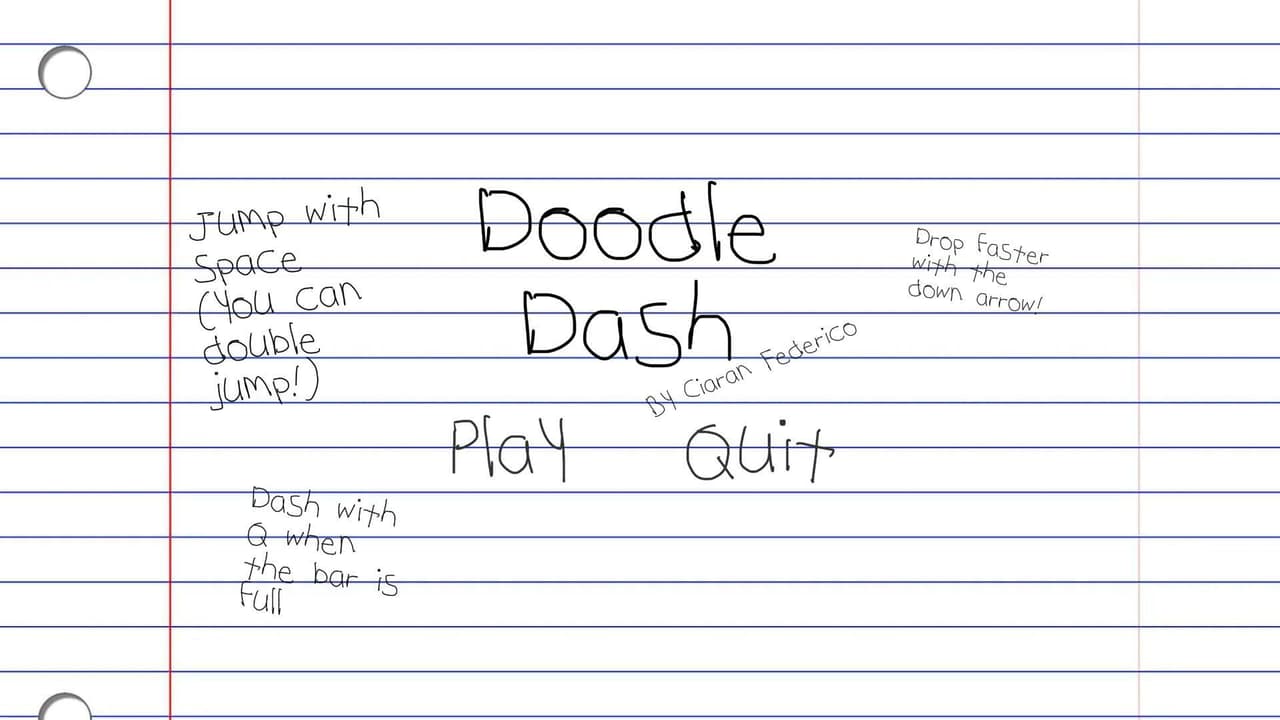 Jump with
Space
(You can
double
jump!)
Doodle
Dash
By Ciaran Federico
Drop faster
with the
down arrow!
Play
Quit
Dash with
Q when
the bar is
full